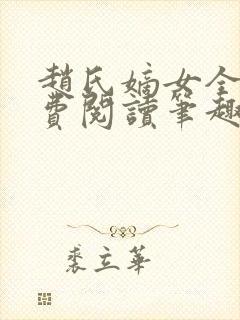 趙氏嫡女全
費閱讀筆趣
裘立華